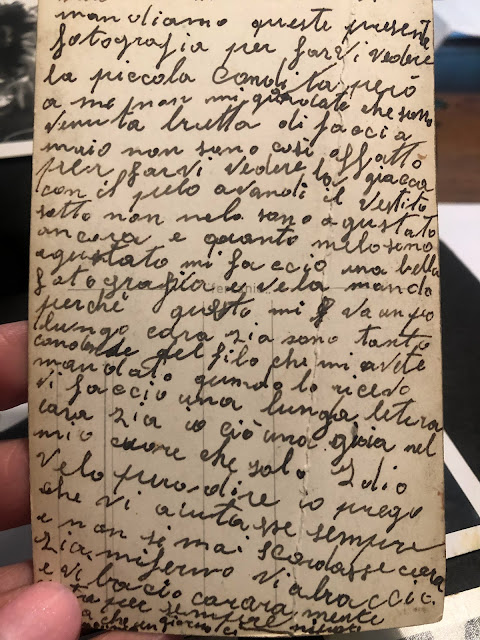 mandiamo queste presente
fotografia per farvi vedere
la piccola Condita però
a me non mi guardate che sono
venuta brutta di faccia
maio non sono cosi affatto
per farvi vedere la giacca
con il pelo avanoti il vestito
sotto non melo sono agustato
ancora e quanto melo sono
agustato mi faccio una bella
fotografia e vela mando
perchè questo mi va un po
llungo cara zia sono tanto
del filo che mi avete
mandato quando lo ricevo
vi faccio una lunga letera
cara zia io ciò una gioia nel
mio cuore che solo Idio
velo puro dire io prego
che vi aiutasse sempre
e non si mai scordasse cara
zia mifermo viabraccio
e vi bacio carara mente
per sempre
giorno ci